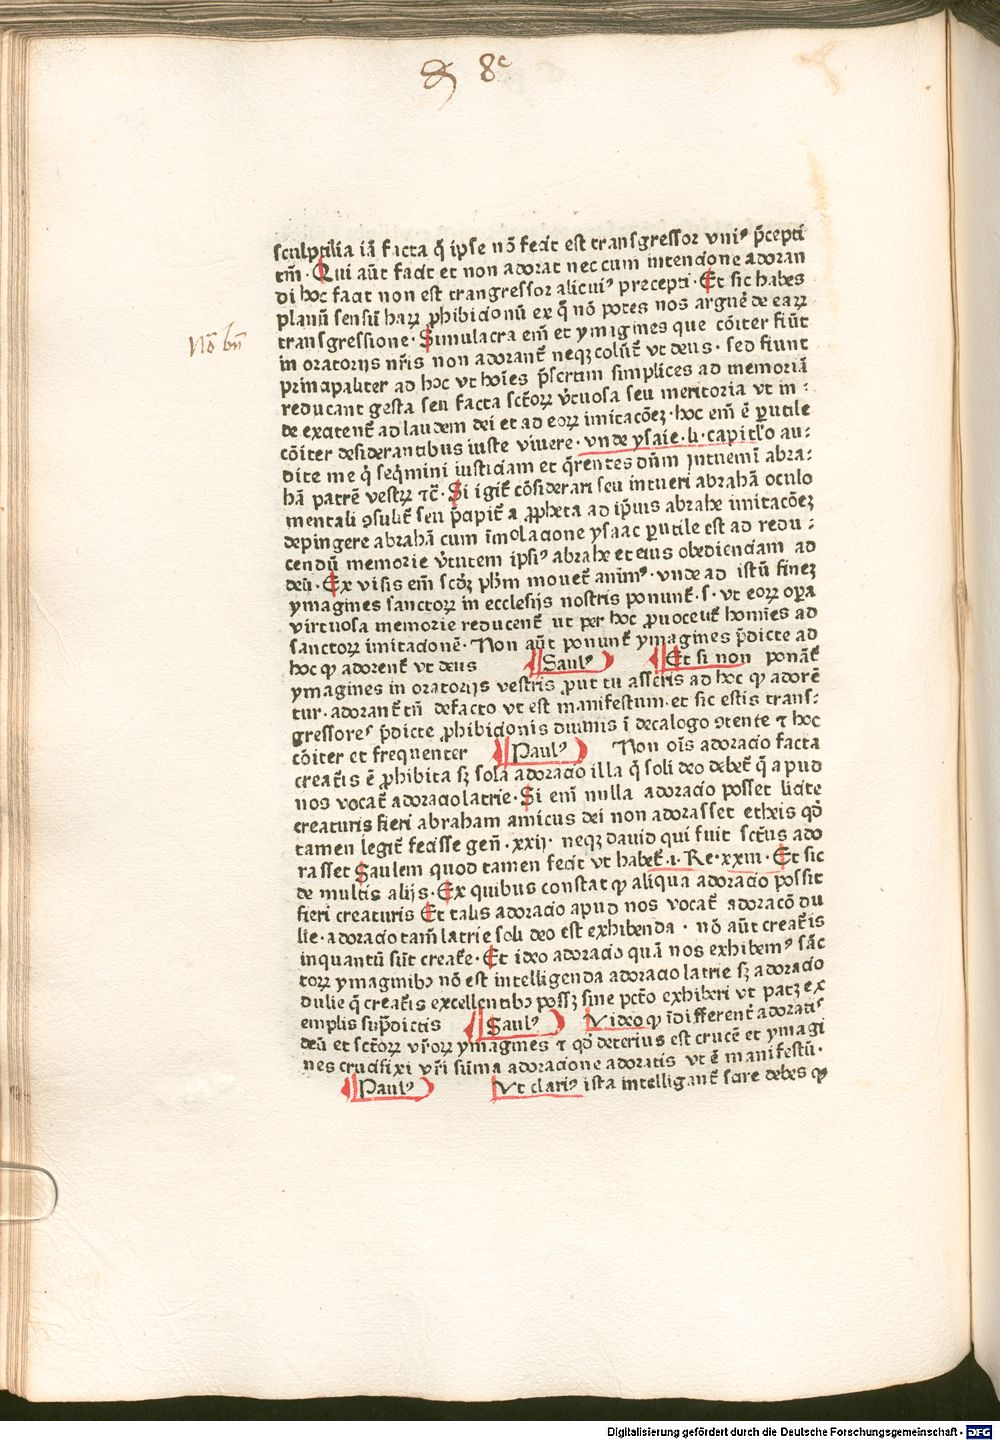 8c
sculptilia iā facta q̄ ipse nō fecit est transgressor vniꝰ p̄cepti
tm̄ · Qui aūt facit et non adorat nec cum intencione adoran
di hoc facit non est trangressor alicuiꝰ precepti · Et sic habes
planū sensū haꝝ ꝓhibicionū ex q̄ nō potes nos arguē de eaꝝ
transgressione · Simulacra em̄ et ymagines que cōiter fiūt
in oratorijs nr̄is non adorant̄ neqꝫ colūt̄ vt deus · sed fiunt
principaliter ad hoc vt hoīes p̄sertim simplices ad memoriā
reducant gesta seu facta sctōꝝ v̄tuosa seu meritoria vt in :
de excitent̄ ad laudem dei et ad eoꝝ imitacōeꝫ · hoc em̄ ē ꝑutile
cōiter desiderantibus iuste viuere · vnde ysaie · li · capitl̄o au :
dite me q̄ seq̄mini iusticiam et q̄rentes dn̄m Intuemī abra :
hā patrē vestꝝ ⁊c̄ · Si igit̄ cōsiderari seu intueri abrahā oculo
mentali ꝯsulit̄ seu p̄cipit̄ a ꝓpheta ad ip̄ius abrahe imitacōeꝫ
depingere abrahā cum īmolacione ysaac ꝑutile est ad redu :
cendū memorie v̄tutem ipsiꝰ abrahe et eius obedienciam ad
deū · Ex visis em̄ scd̄ꝫ ph̄m mouet̄ animꝰ · vnde ad istū fineꝫ
ymagines sanctoꝝ in ecclesijs nostris ponunt̄ · s · vt eoꝝ oꝑa
virtuosa memorie reducent̄ ut per hoc ꝓuocent̄ homīes ad
sanctoꝝ imitacionē · Non aūt ponunt̄ ymagines p̄dicte ad
hoc ꝙ adorent̄ vt deus Saulꝰ Et si non ponāt̄
ymagines in oratorijs vestris ꝓut tu asseris ad hoc ꝙ adorē
tur · adorant̄ tn̄ defacto vt est manifestum · et sic estis trans :
gressoreˢ p̄dicte ꝓhibicionis diuinis ī decalogo ꝯtente ⁊ hoc
cōiter et frequenter Paulꝰ Non oīs adoracio facta
creat̄is ē ꝓhibita sꝫ sola adoracio illa q̄ soli deo debet̄ q̄ apud
nos vocat̄ adoracio latrie · Si em̄ nulla adoracio posset licite
creaturis fieri abraham amicus dei non adorasset etheis qd̄
tamen legit̄ fecisse gen̄ · xxij · neqꝫ dauid qui fuit sct̄us ado
rasset Saulem quod tamen fecit vt habet̄ · i · Re · xxiiii · Et sic
de multis alijs · Ex quibus constat ꝙ aliqua adoracio possit
fieri creaturis Et talis adoracio apud nos vocat̄ adoracō du
lie · adoracio tam̄ latrie soli deo est exhibenda · nō aūt creat̄is
inquantū sūt creat̄e · Et ideo adoracio quā nos exhibemꝰ sāc
toꝝ ymaginibꝫ nō est intelligenda adoracio latrie sꝫ adoracio
dulie q̄ creat̄is excellentibꝫ possꝫ sine pctō exhiberi vt patꝫ ex
emplis sup̄dictis Saulꝰ Video ꝙ īdifferent̄ adoratiˢ
deū et sctōꝝ vr̄oꝝ ymagines ⁊ qd̄ deterius est crucē et ymagi
nes crucifixi vr̄i sūma adoracione adoratis vt ē manifestū ·
Paulꝰ Vt clariꝰ ista intelligant̄ scire debes ꝙ
Digitalisierung gefördert durch die Deutsche Forschungsgemeinschaft - DFG